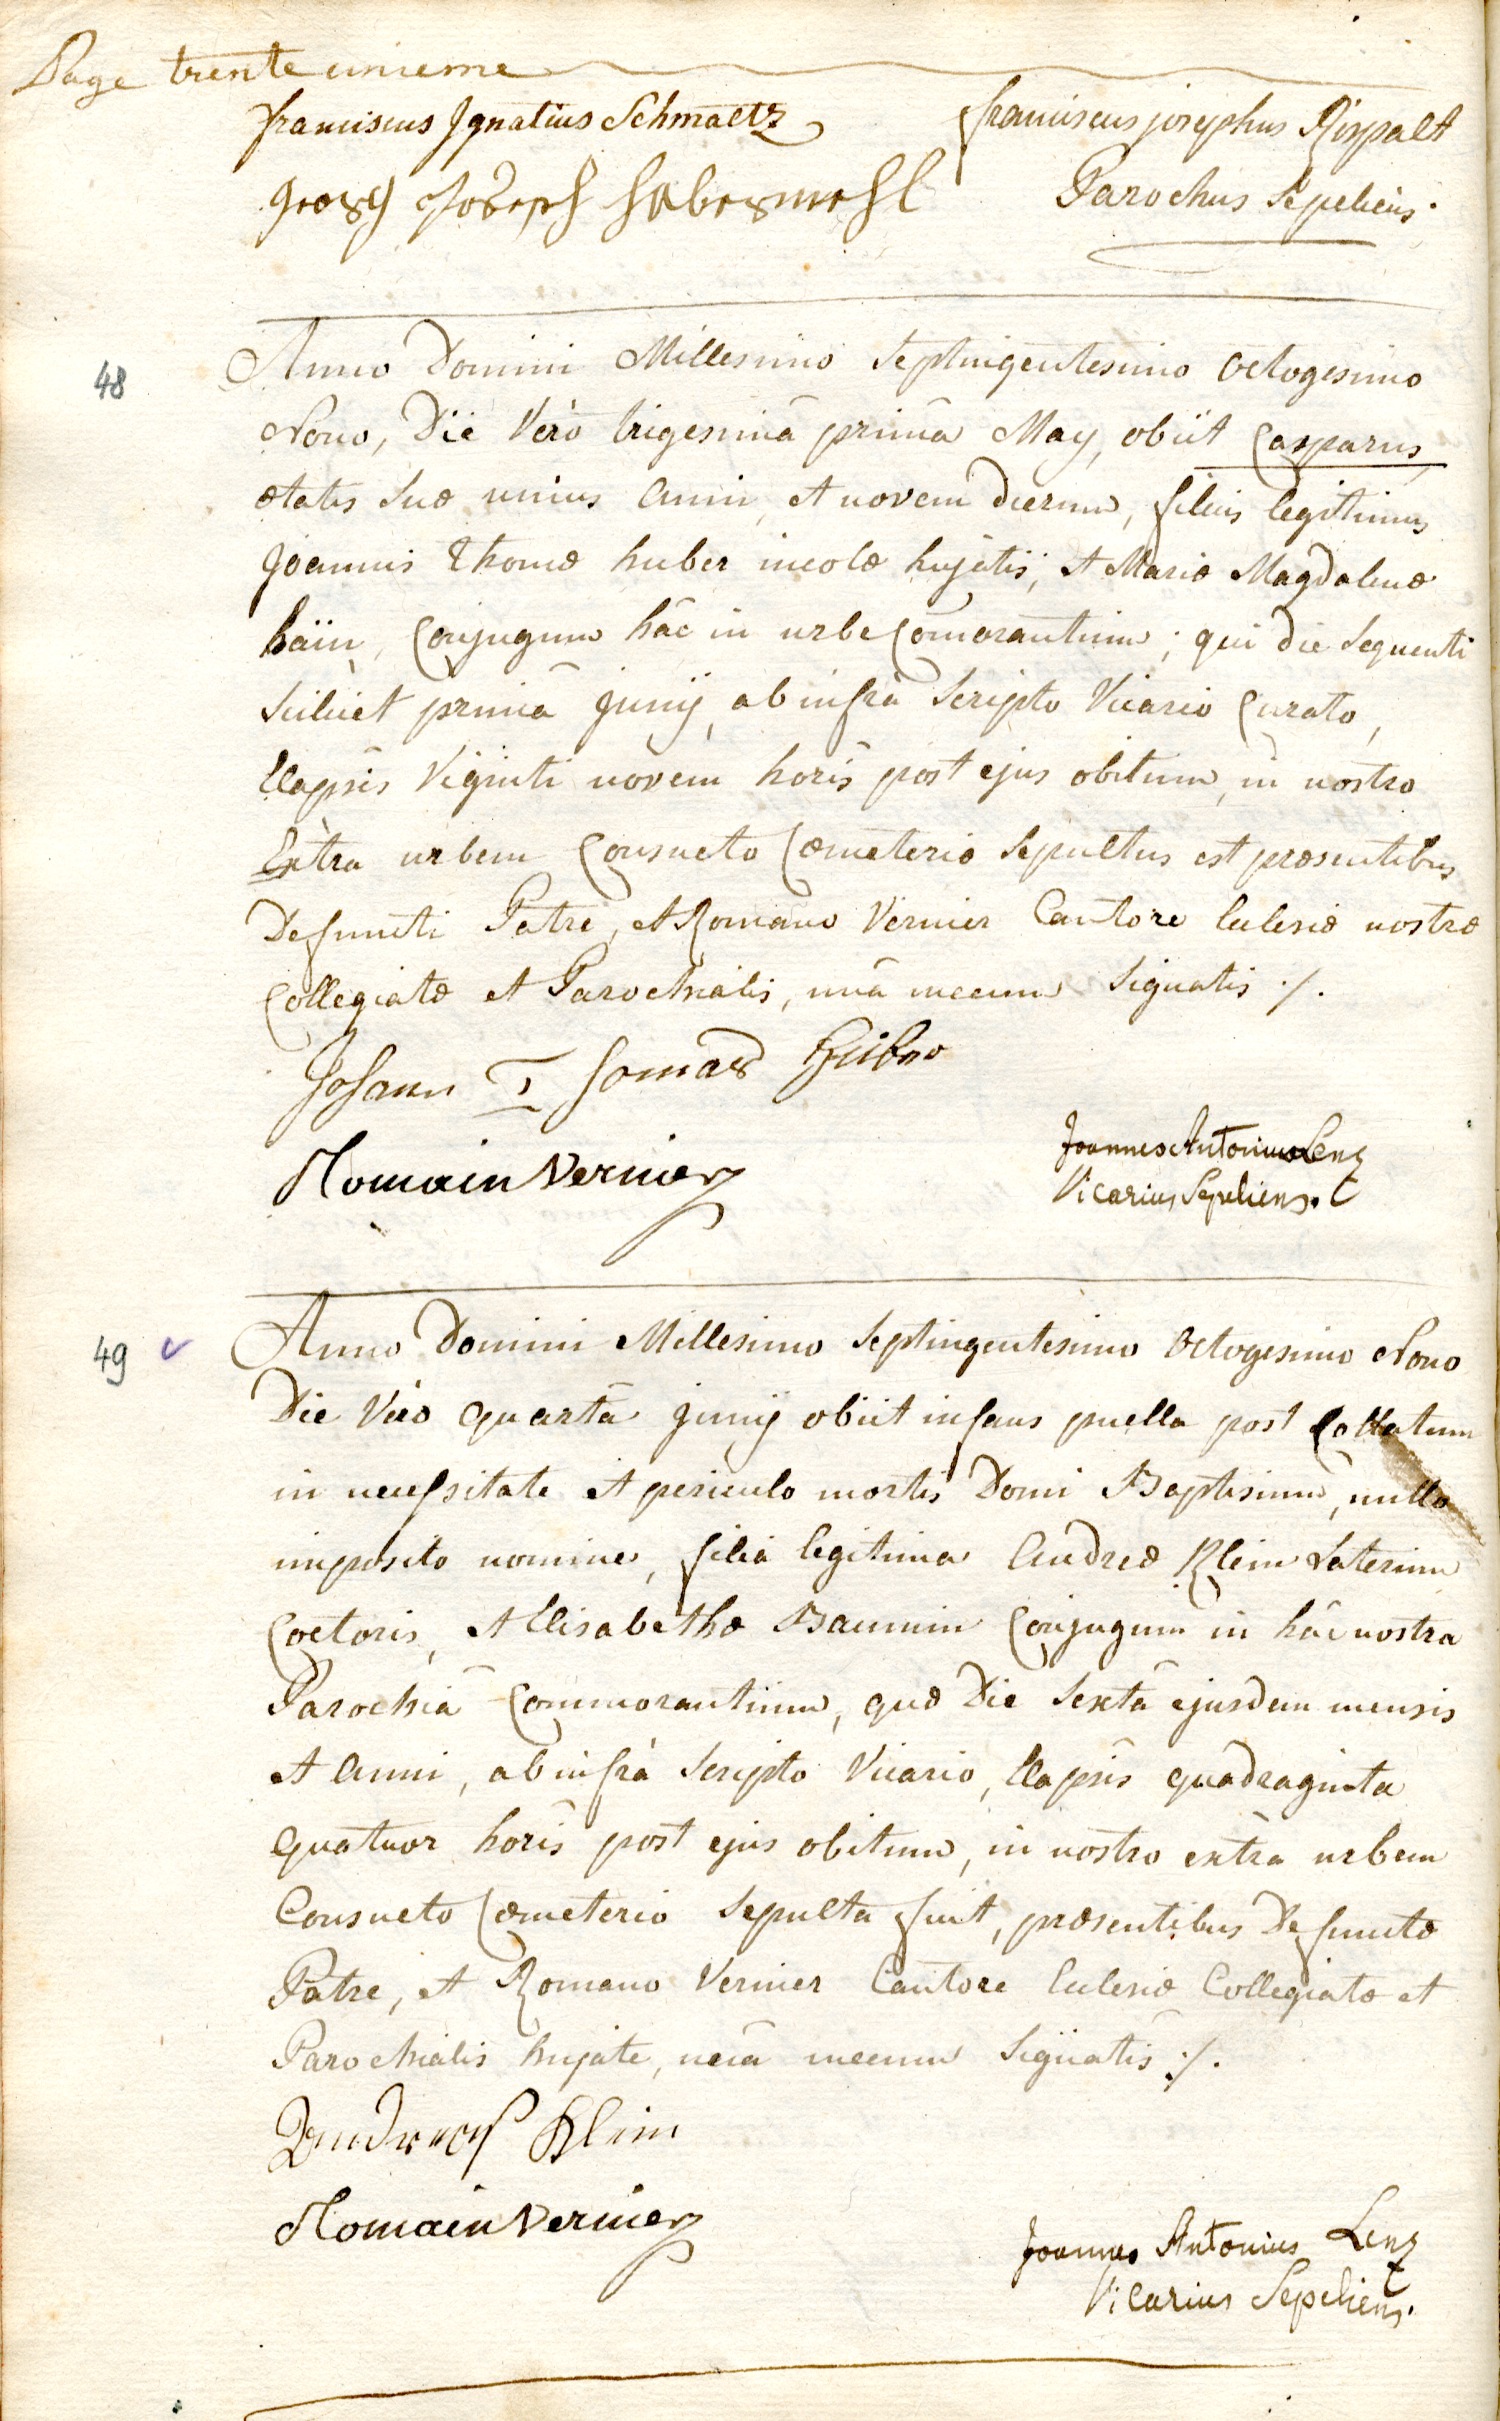 Page trente unieme
franciscus Ignatius Schmaltz
franciscus josephus Rispalt
Georg Joseph Habermehl
Parochus Sepeliens.
48
Anno Domini Millesimo Septingentesimo Octogesimo
Nono, Die Vero trigesimâ primâ May, obiit Casparus,
ætatis suæ unius Anni, et novem dierum, filius legitimus
Joannis Thomæ huber incolæ hujatis, et Mariæ Magdalenæ
häin, Conjugum hâc in urbe Com̄orantium; qui die sequenti
scilicet primâ Junij, ab infrà Scripto Vicario Curato,
Elapsis Viginti novem horis post ejus obitum, in nostro
Extra urbem Consueto Cœmeterio Sepultus est præsentibus
Defuncti Patre, et Romano Vernier Cantore Ecclesiæ nostræ
Collegiatæ et Parochialis, unâ mecum Signatis ./.
Johann Thomas Huber
Romain Vernier
Joannes Antonius Lenz
Vicarius Sepeliens.
49
Anno Domini Millesimo Septingentesimo Octogesimo Nono
Die Vero Quartâ Junij obiit infans puella post Collatum
in necessitate et periculo mortis Domi Baptismum, nullo
imposito nomine, filia legitima Andreæ Klein Laterum
Coctoris, et Elisabethæ Baumin Conjugum in hâc nostra
Parochiâ Commorantium, quæ Die Sextâ ejusdem mensis
et Anni, ab infrà Scripto Vicario, Elapsis quadraginta
quatuor horis post ejus obitum, in nostro extra urbem
Consueto Cœmeterio Sepulta fuit, præsentibus Defunctæ
Patre, et Romano Vernier Cantore Ecclesiæ Collegiatæ et
Parochialis hujate, unâ mecum Signatis ./.
Andreas Klein
Romain Vernier
Joannes Antonius Lenz
Vicarius Sepeliens.